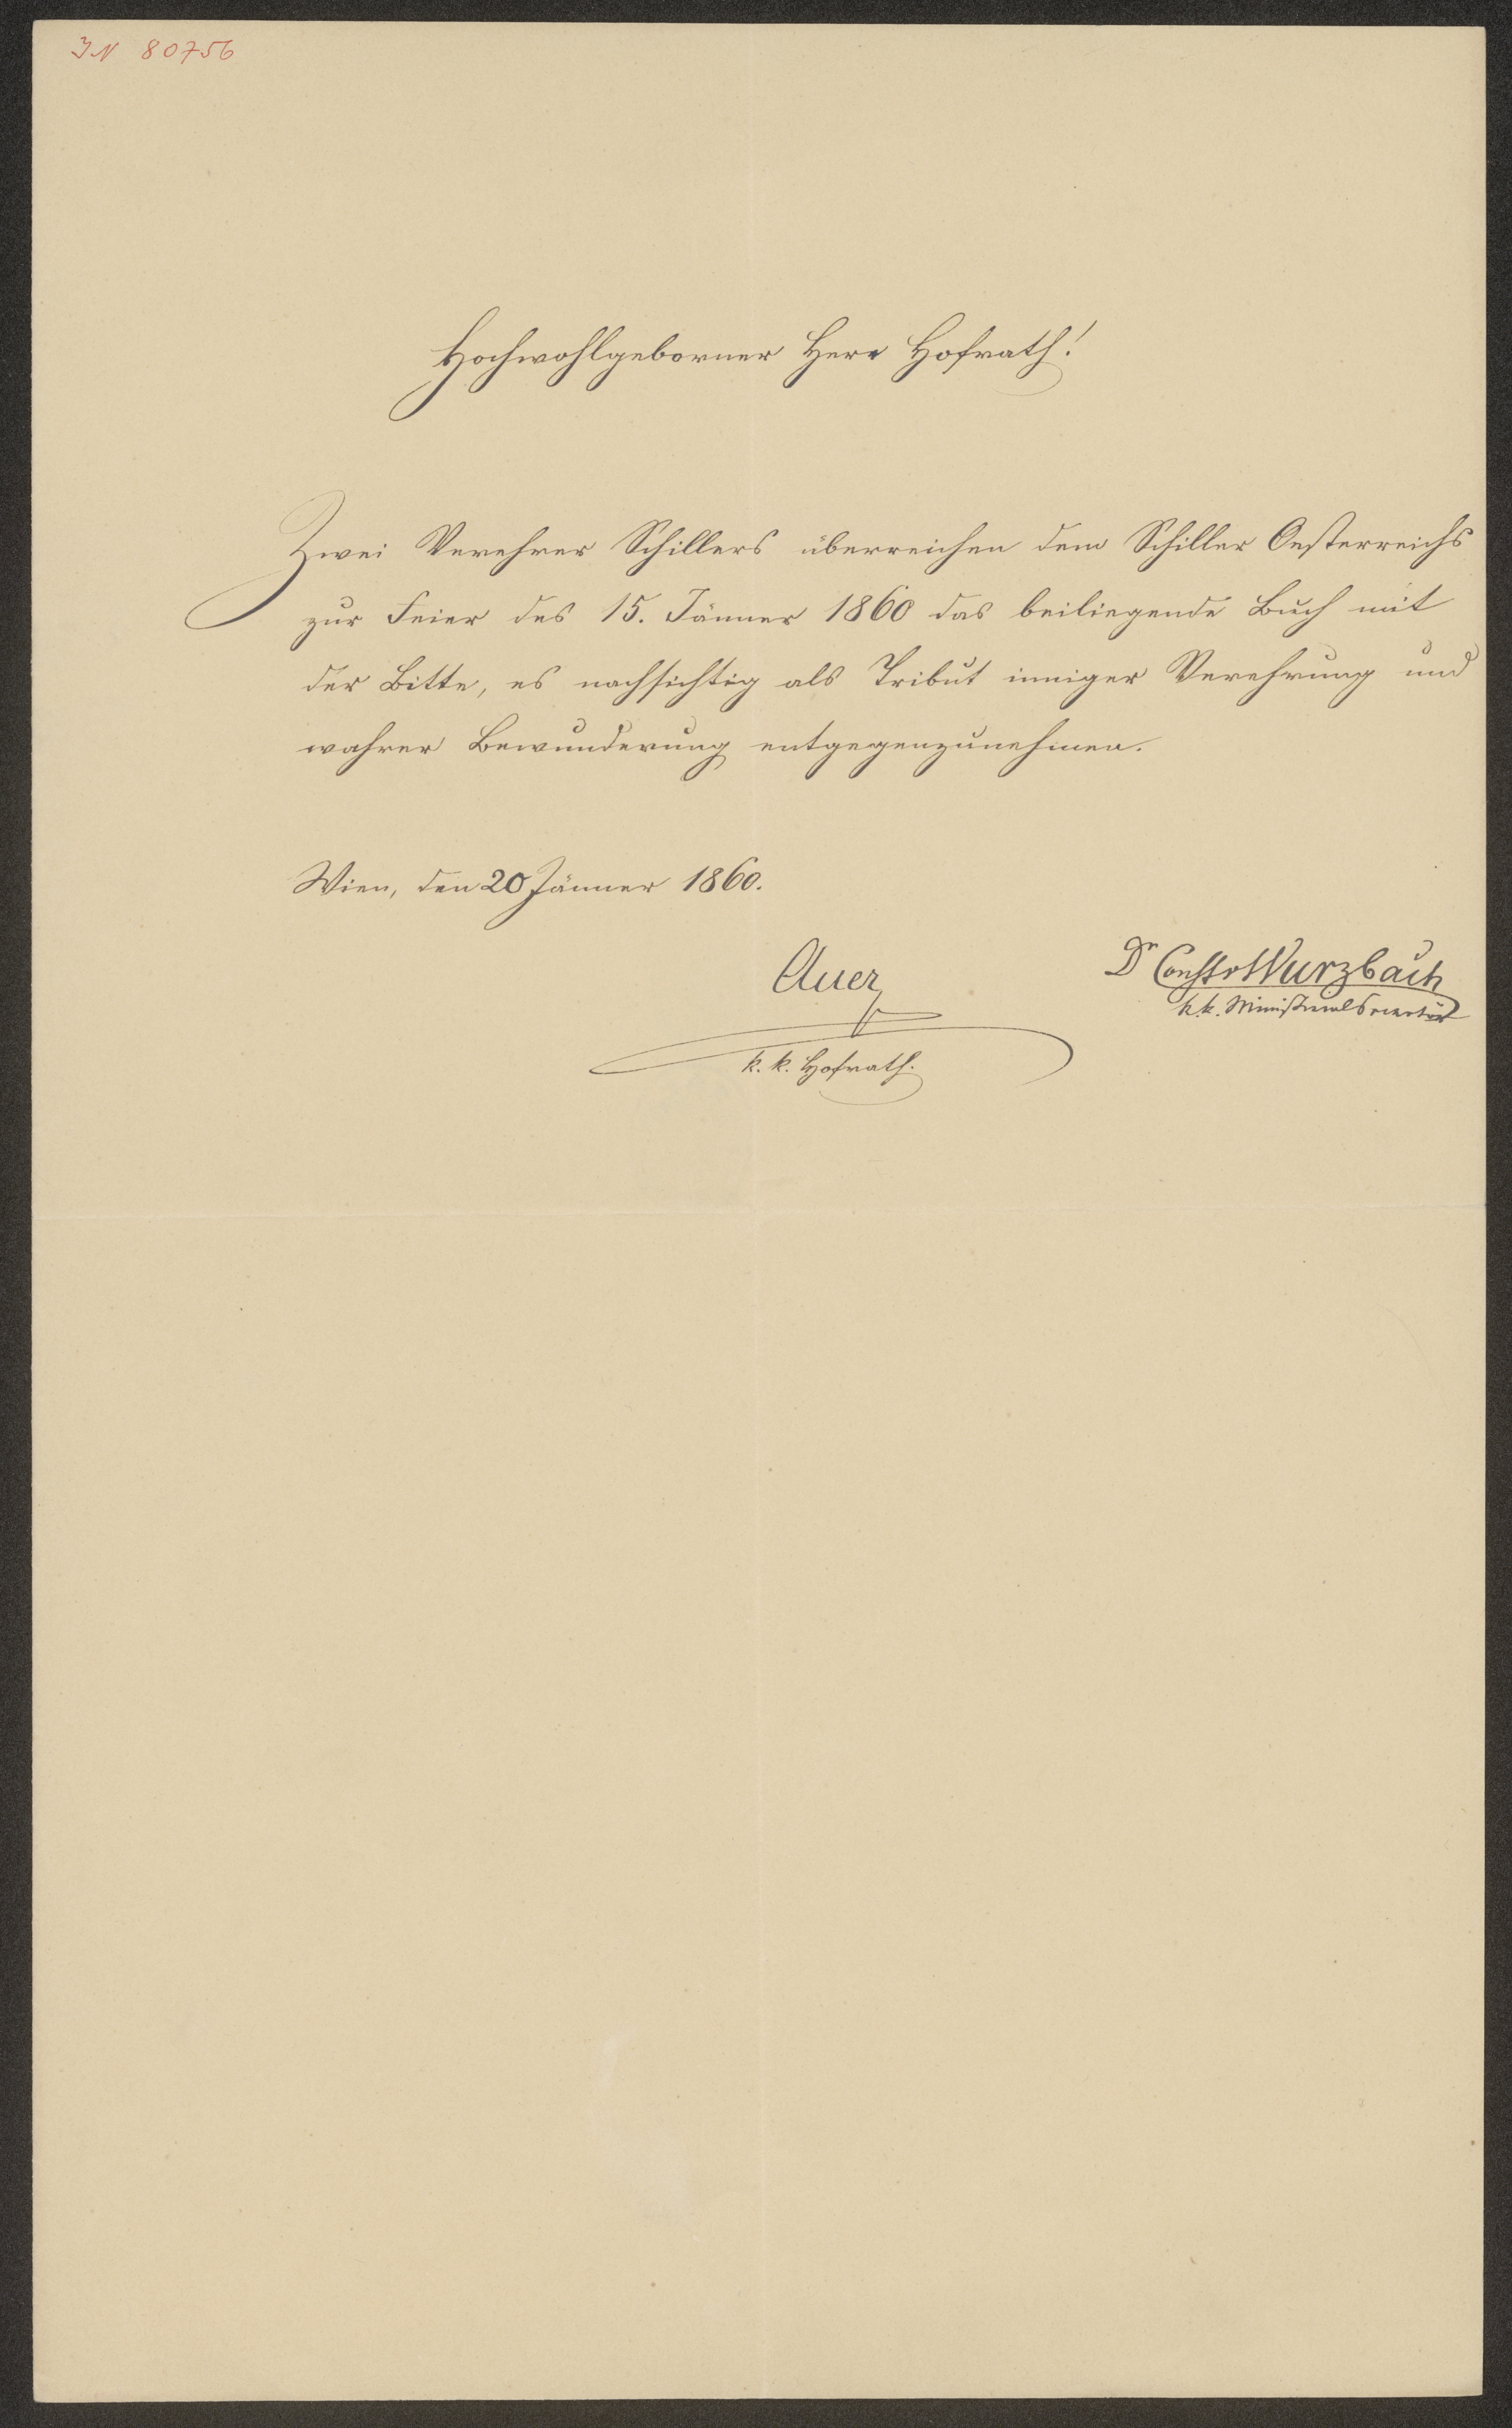 IN 80756
Hochwohlgeborner Herr Hofrath!
Zwei Verehrer Schillers überreichen dem Schiller Oesterreichs
zur Feier des 15. Jänner 1860 das beiliegende Buch mit
der Bitte, es nachsichtig als Tribut inniger Verehrung und
wahrer Bewunderung entgegenzunehmen.
Wien, den 20 Jänner 1860.
Auer
k. k. Hofrath.
Dr Const v Wurzbach
k. k. Ministerialsecretär